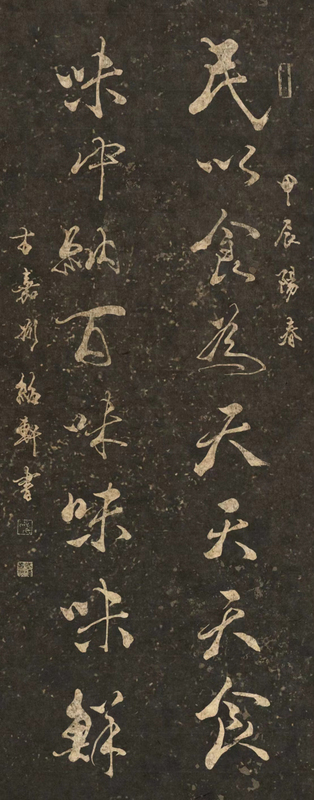 甲辰陽春
民以食為天天天食
味中納百味味味鮮
古嘉州紹軒書